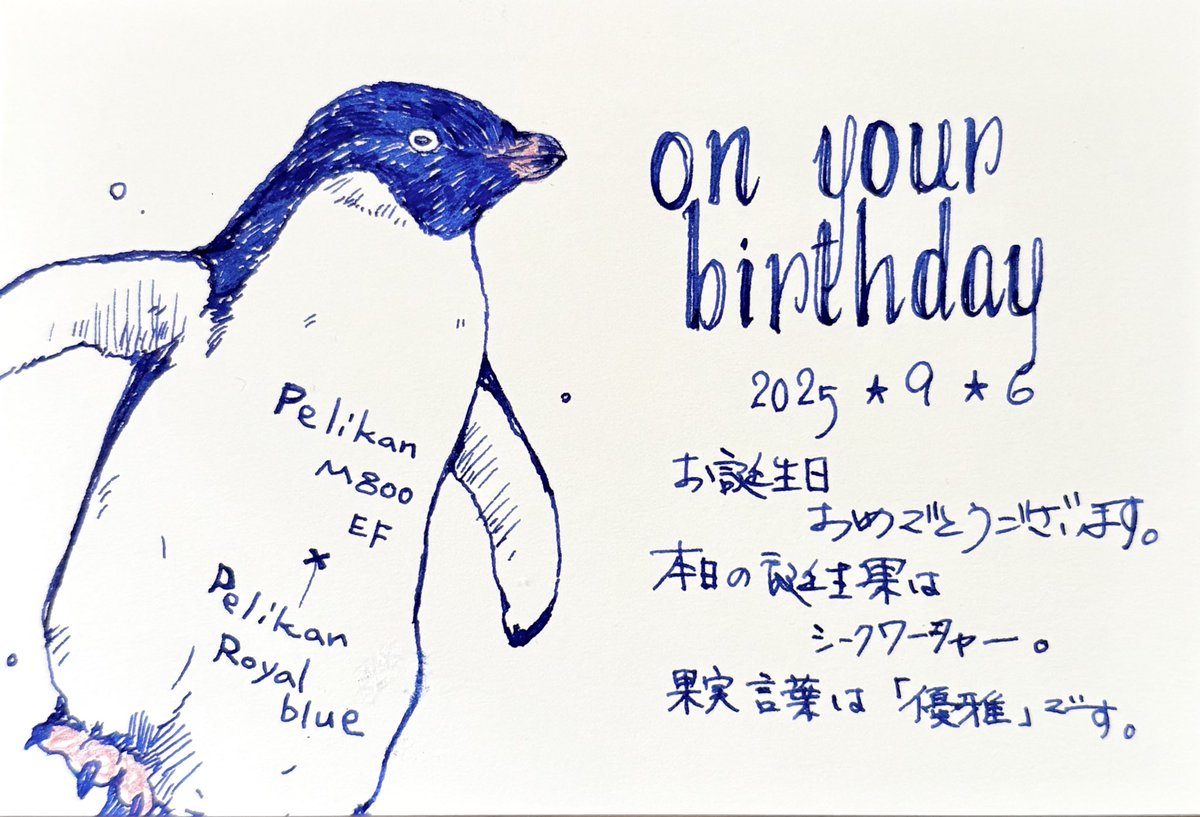 on your
birthday
2025★9★6
お誕生日
おめでとうございます。
本日の誕生果は
シークワーサャー。
果実言葉は「優雅」です。
Pelikan
M800
EF
Pelikan
Royal
blue